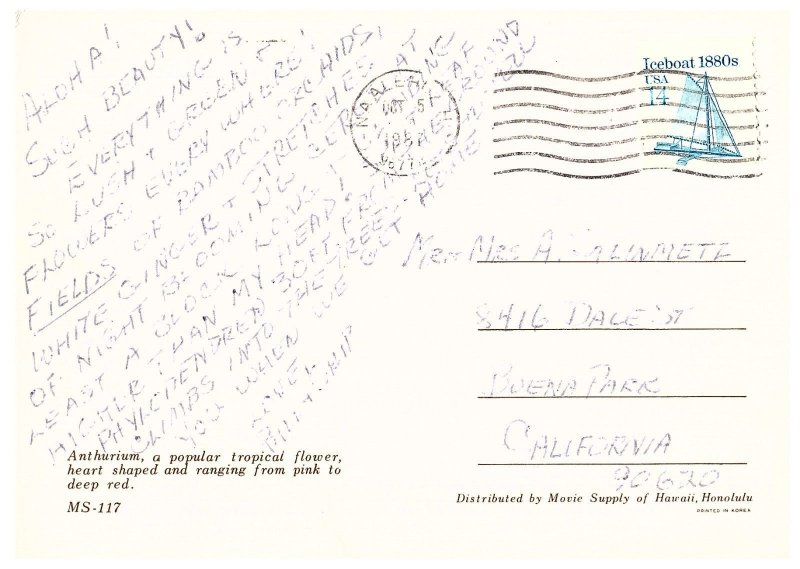 ALOHA!
SUCH BEAUTY!
EVERYTHING IS
SO LUSH & GREEN &
FLOWERS EVERY WHERE!
FIELDS OF BAMBOO ORCHIDS,
WHITE GINGER & STRETCHES
OF NIGHT BLOOMING AT
LEAST A BLOCK LONG
HIGHER THAN MY HEAD.
PHYLODENDREN 30FT FROM LEAF
CLIMBS INTO THE TREES. AROUND
YOU WHEN WE GET HOME
LOVE,
Iceboat 1880s
USA
14
OCT 5
MR & MRS A.
8416 DALE ST
BUENA PARK
CALIFORNIA
90620
Anthurium, a popular tropical flower,
heart shaped and ranging from pink to
deep red.
MS-117
Distributed by Movie Supply of Hawaii, Honolulu
PRINTED IN KOREA